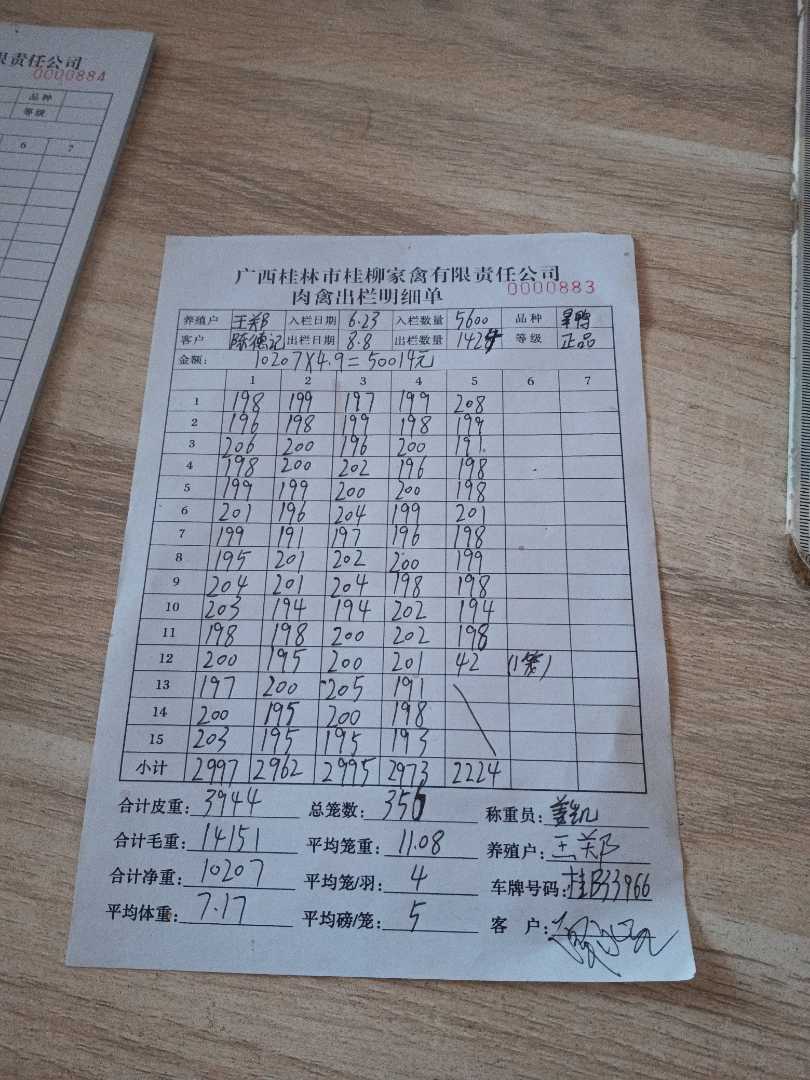 限责任公司
0000884
品种
等级
6 7
广西桂林市桂柳家禽有限责任公司
肉禽出栏明细单 0000883
养殖户 王郑 入栏日期 6.23 入栏数量 5600 品种
客户 陈德记 出栏日期 8.8 出栏数量 1424 等级 正品
金额: 10207×4.9=50014元
1 2 3 4 5 6 7
1 198 199 197 199 208
2 196 198 199 198 199
3 206 200 196 200 191
4 198 200 202 196 198
5 199 199 200 200 198
6 201 196 204 199 201
7 199 191 197 196 198
8 195 201 202 200 199
9 204 201 204 198 198
10 203 194 194 202 194
11 198 198 200 202 198
12 200 195 200 201 42 (1笼)
13 197 200 205 191
14 200 195 200 198
15 203 195 195 193
小计 2997 2962 2995 2973 2224
合计皮重: 3944 总笼数: 356 称重员: 姜凯
合计毛重: 14151 平均笼重: 11.08 养殖户: 王郑
合计净重: 10207 平均笼/羽: 4 车牌号码: 桂B33966
平均体重: 7.17 平均磅/笼: 5 客 户: